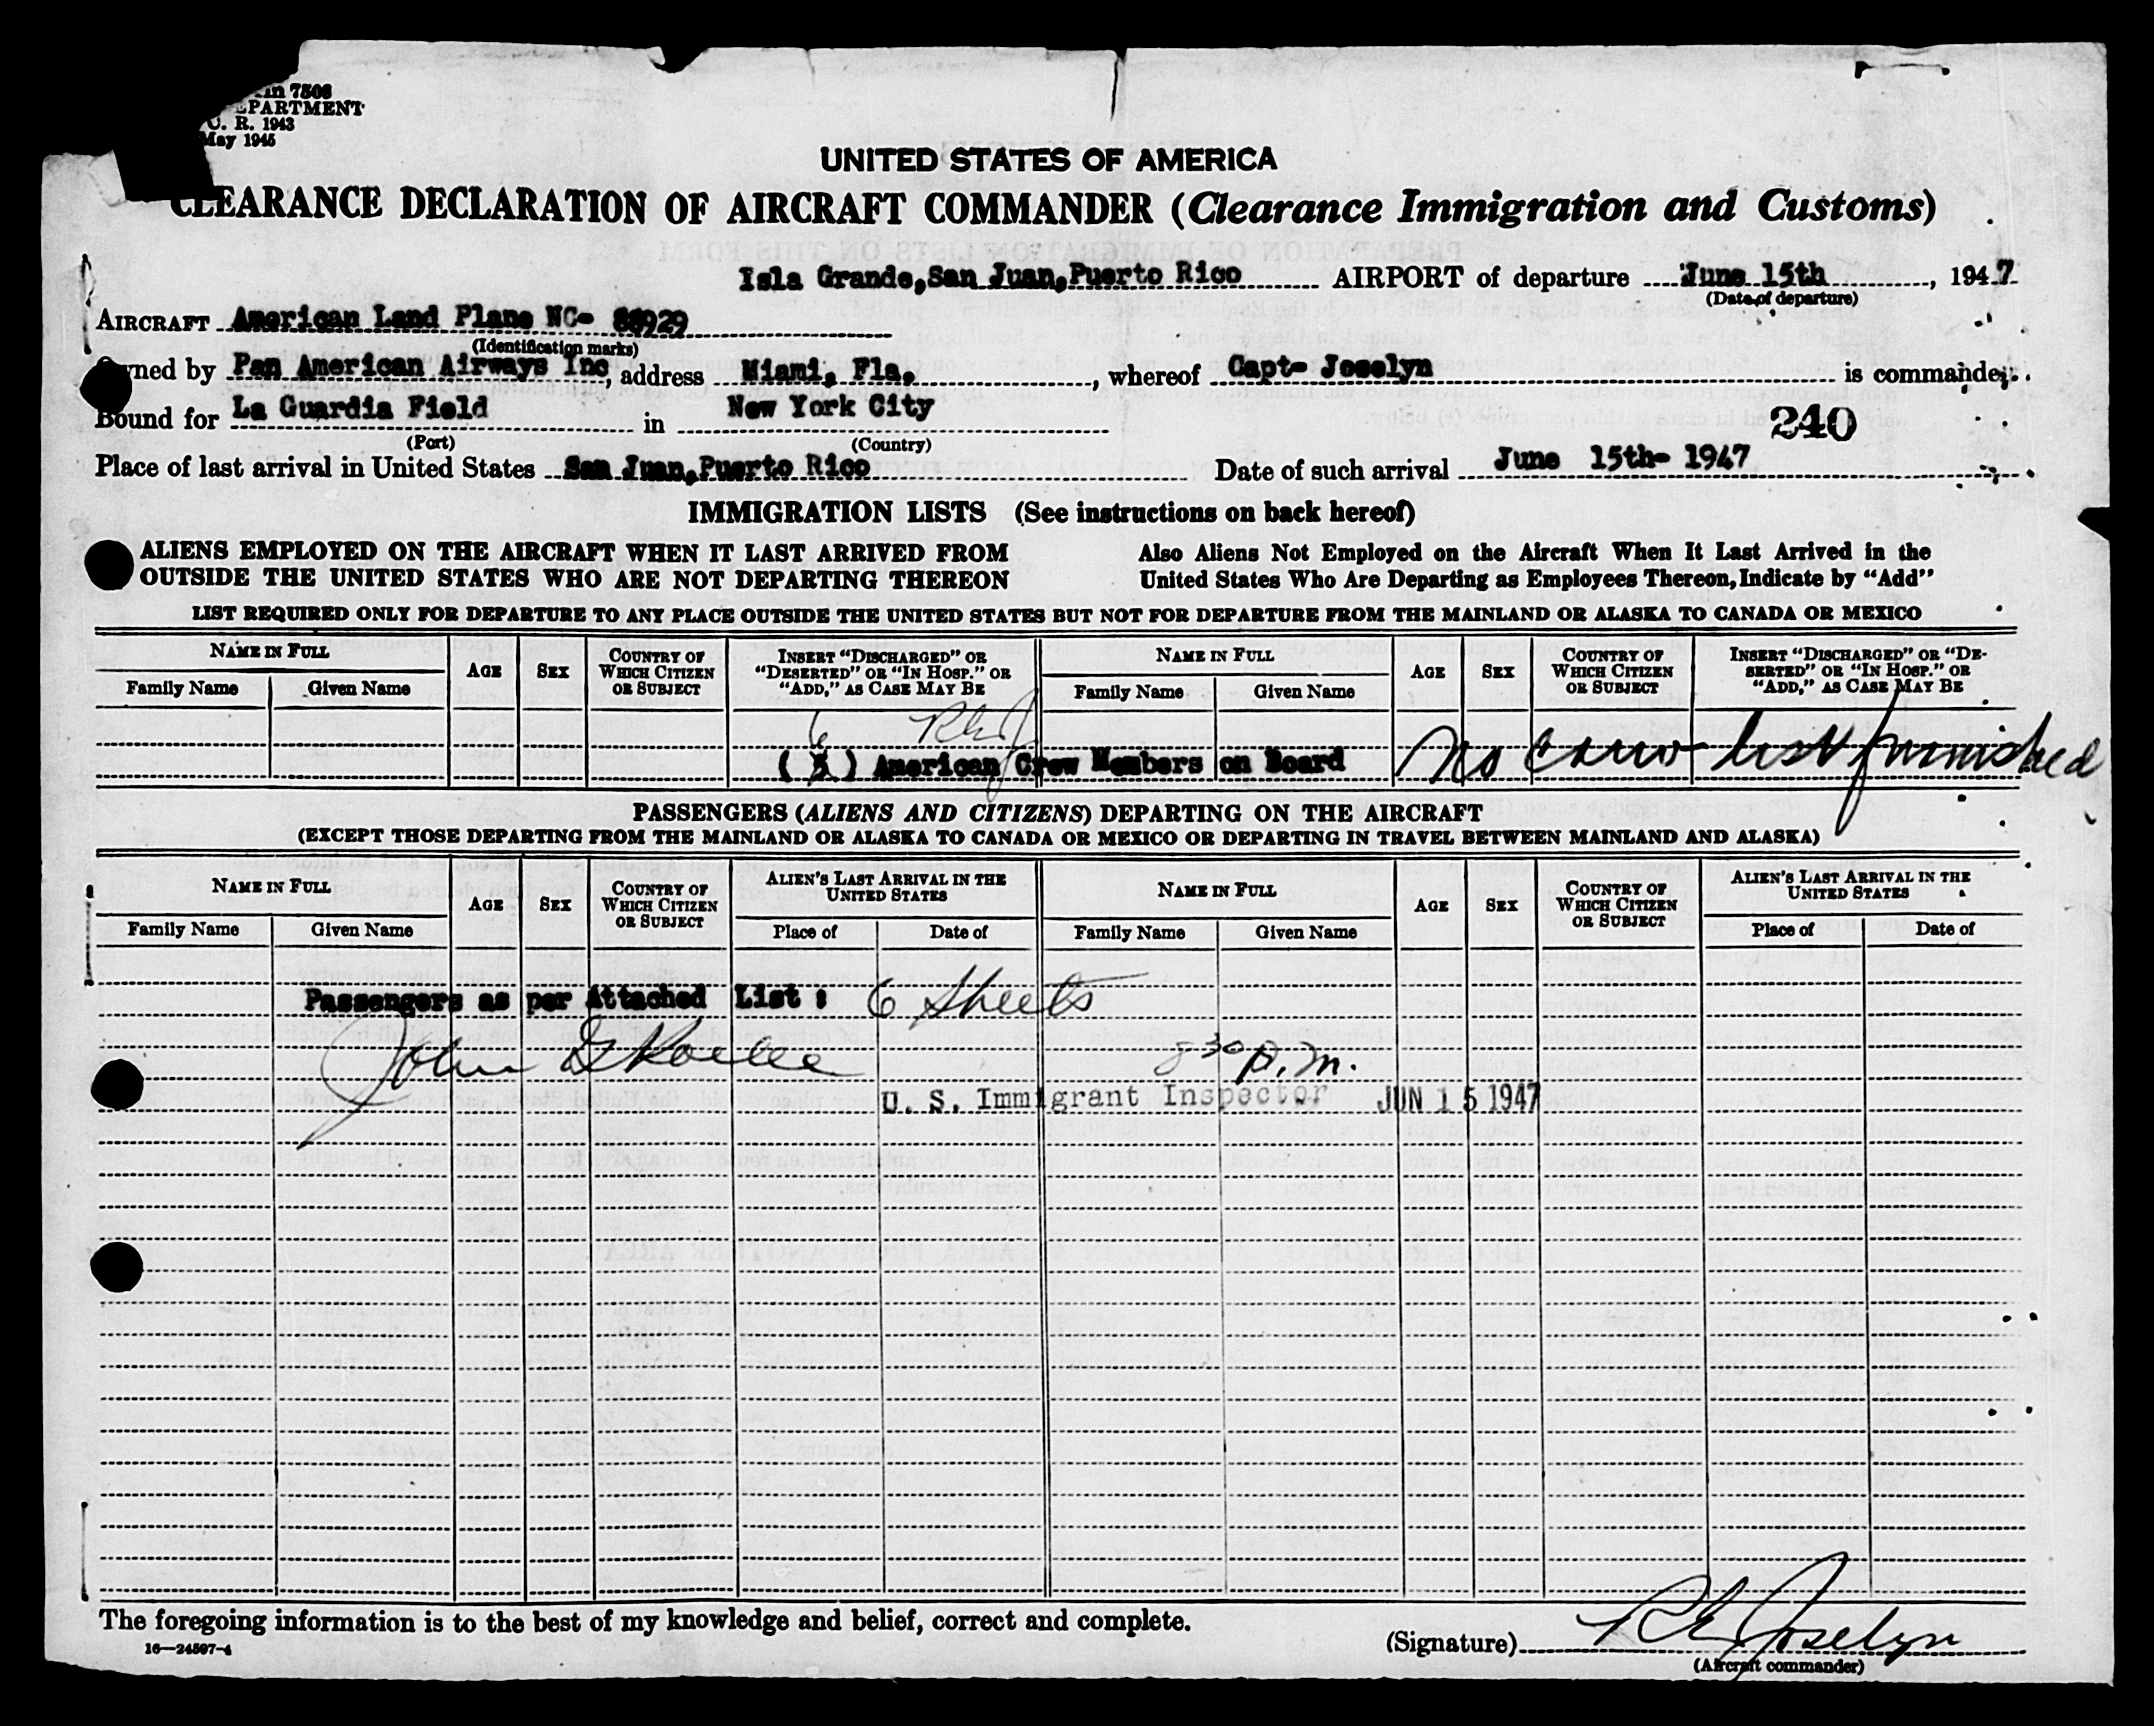 7506
DEPARTMENT
C. R. 1943
May 1945
UNITED STATES OF AMERICA
CLEARANCE DECLARATION OF AIRCRAFT COMMANDER (Clearance Immigration and Customs)
Isla Grande, San Juan, Puerto Rico AIRPORT of departure June 15th, 1947
(Date of departure)
AIRCRAFT American Land Plane NC- 88929
(Identification marks)
Owned by Pan American Airways Inc, address Miami, Fla., whereof Capt- Joselyn is commander.
Bound for La Guardia Field in New York City
240
(Port) (Country)
Place of last arrival in United States San Juan, Puerto Rico Date of such arrival June 15th- 1947
IMMIGRATION LISTS (See instructions on back hereof)
ALIENS EMPLOYED ON THE AIRCRAFT WHEN IT LAST ARRIVED FROM OUTSIDE THE UNITED STATES WHO ARE NOT DEPARTING THEREON
Also Aliens Not Employed on the Aircraft When It Last Arrived in the United States Who Are Departing as Employees Thereon, Indicate by "Add"
LIST REQUIRED ONLY FOR DEPARTURE TO ANY PLACE OUTSIDE THE UNITED STATES BUT NOT FOR DEPARTURE FROM THE MAINLAND OR ALASKA TO CANADA OR MEXICO
NAME IN FULL AGE SEX COUNTRY OF WHICH CITIZEN OR SUBJECT INSERT "DISCHARGED" OR "DESERTED" OR "IN HOSP." OR "ADD," AS CASE MAY BE NAME IN FULL AGE SEX COUNTRY OF WHICH CITIZEN OR SUBJECT INSERT "DISCHARGED" OR "DESERTED" OR "IN HOSP." OR "ADD," AS CASE MAY BE
Family Name Given Name Family Name Given Name
6 REJ
(5) American Crew Members on Board No crew list furnished
PASSENGERS (ALIENS AND CITIZENS) DEPARTING ON THE AIRCRAFT
(EXCEPT THOSE DEPARTING FROM THE MAINLAND OR ALASKA TO CANADA OR MEXICO OR DEPARTING IN TRAVEL BETWEEN MAINLAND AND ALASKA)
NAME IN FULL AGE SEX COUNTRY OF WHICH CITIZEN OR SUBJECT ALIEN'S LAST ARRIVAL IN THE UNITED STATES NAME IN FULL AGE SEX COUNTRY OF WHICH CITIZEN OR SUBJECT ALIEN'S LAST ARRIVAL IN THE UNITED STATES
Family Name Given Name Place of Date of Family Name Given Name Place of Date of
Passengers as per Attached List : 6 Sheets
John 8 30 P.M.
U. S. Immigrant Inspector JUN 15 1947
The foregoing information is to the best of my knowledge and belief, correct and complete.
16—24597-4
(Signature) RE Joselyn
(Aircraft commander)